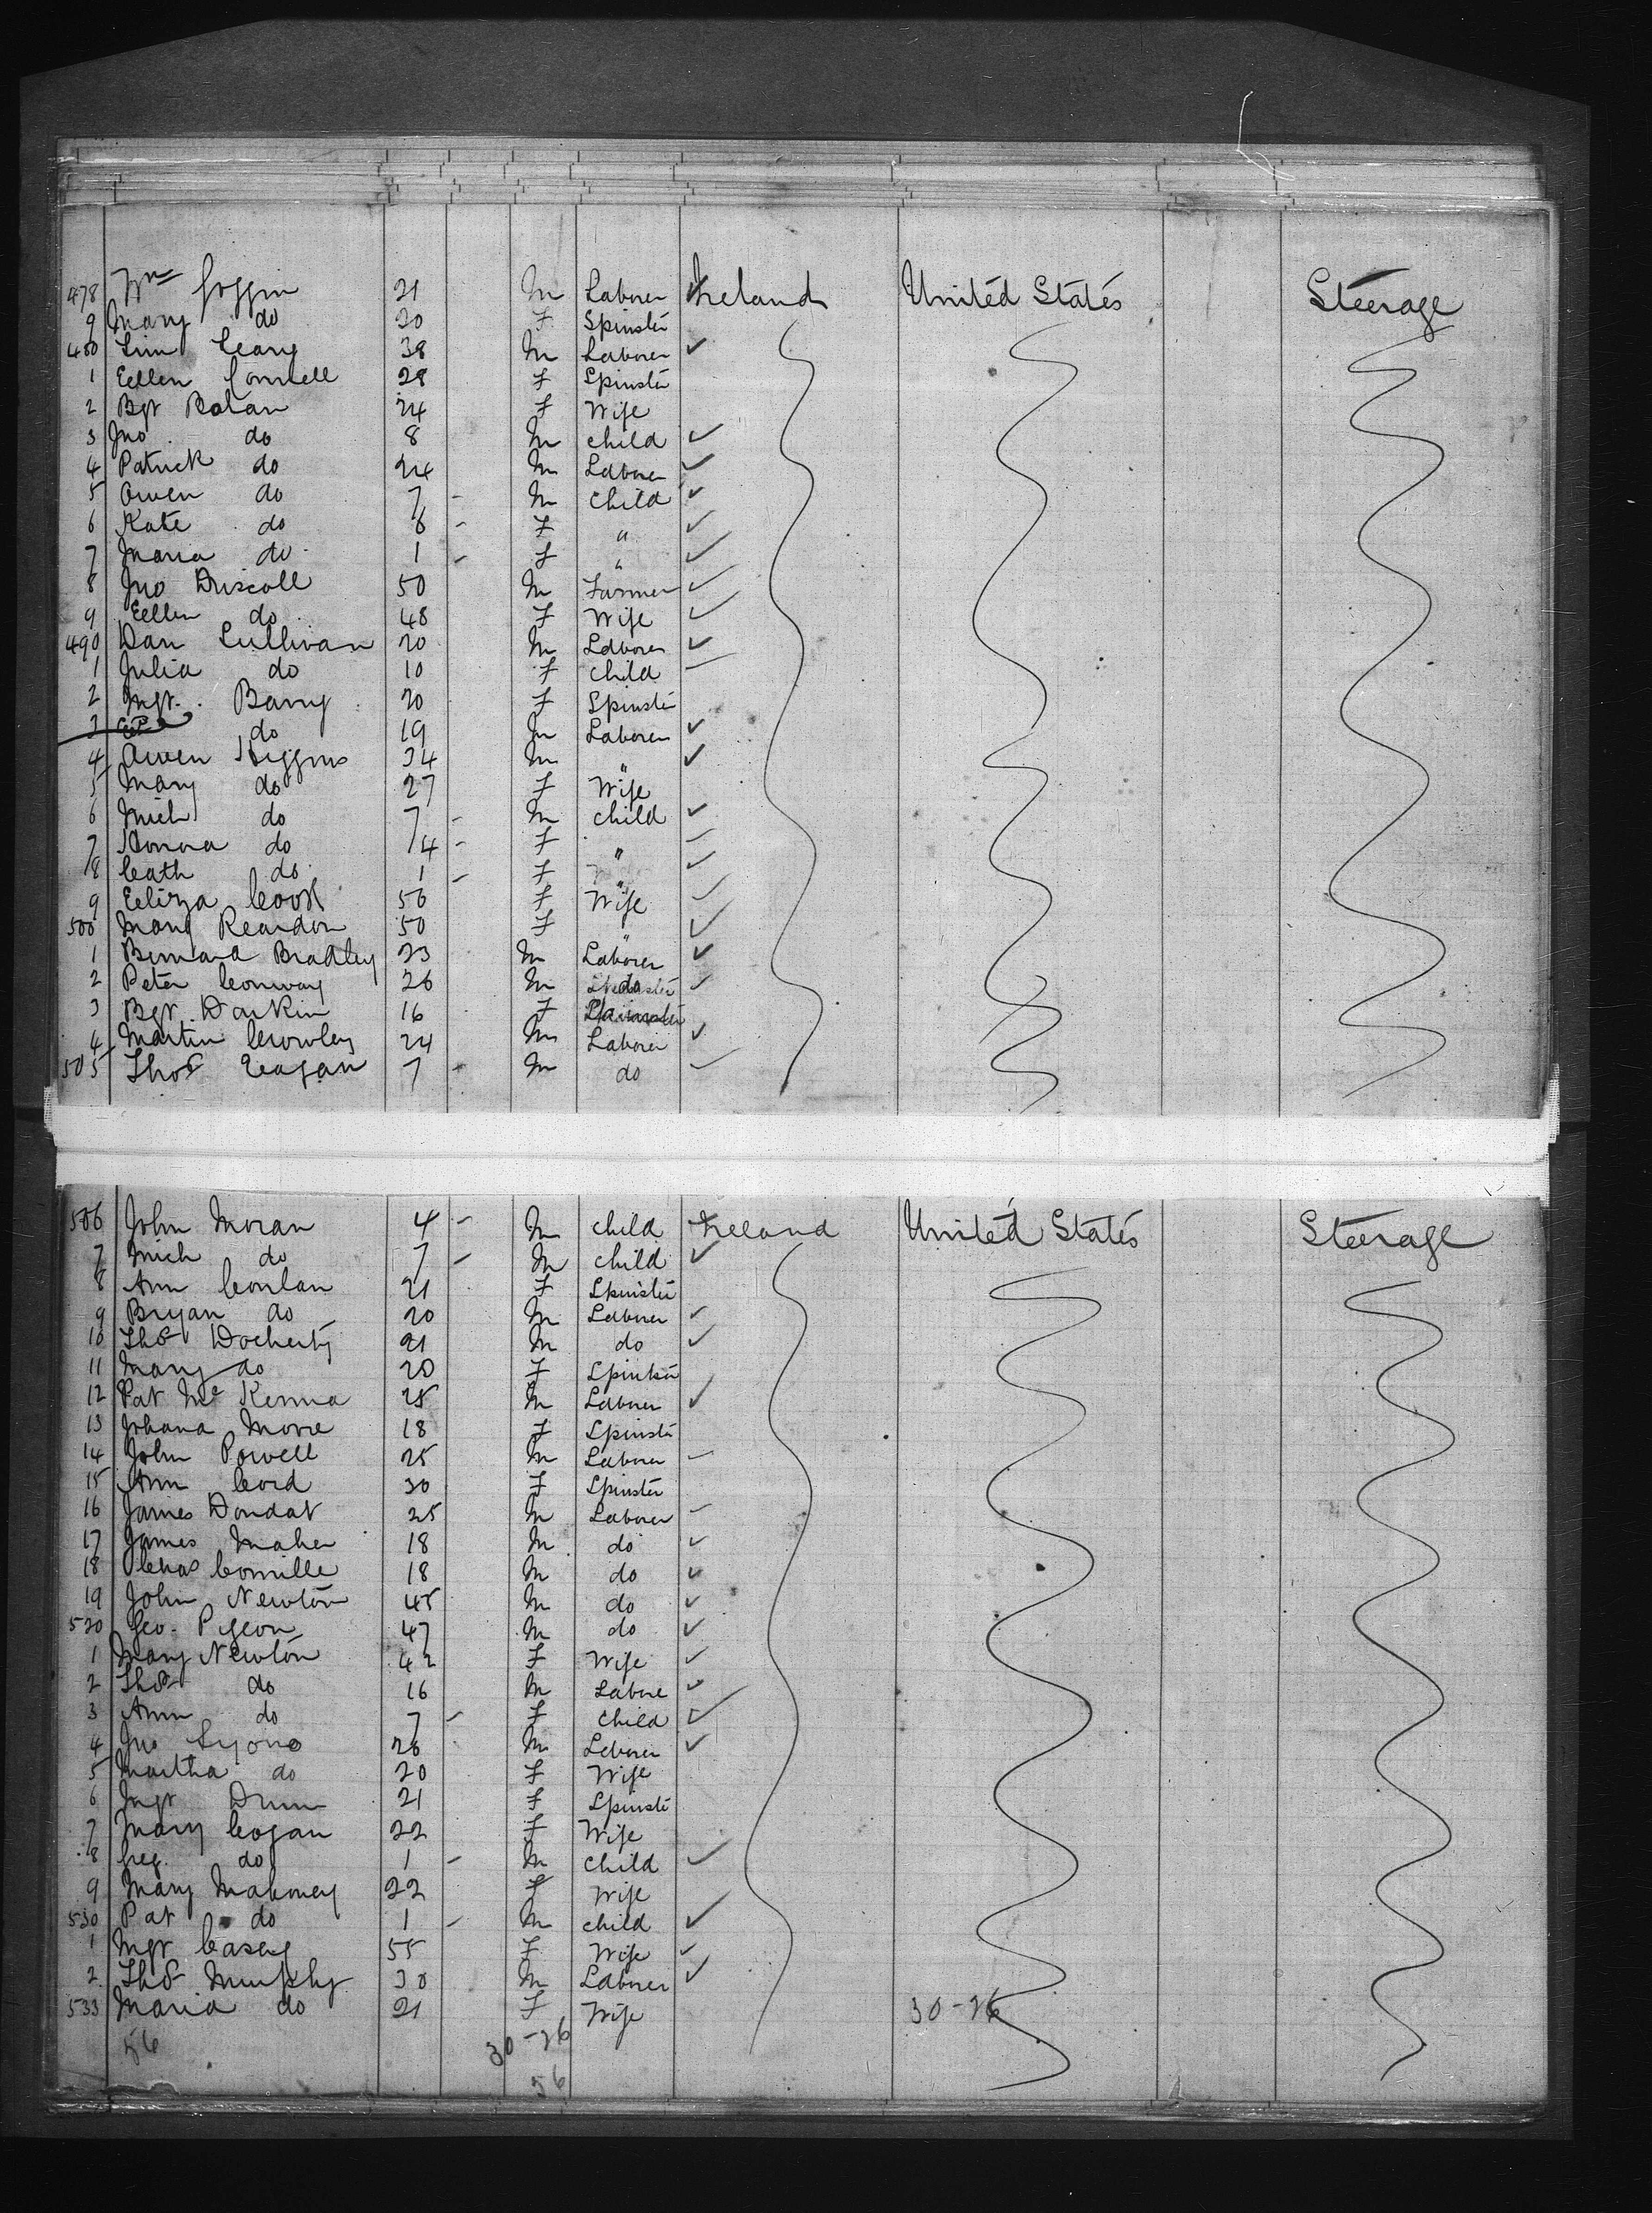 478 Wm Goggin 21 M Laborer Ireland United States Steerage
9 Mary do 20 F Spinster
480 Tim Leary 38 M Laborer
1 Eellen Connell 28 F Spinster
2 Bgt Bolan 24 F Wife
3 Jno do 8 M child
4 Patrick do 24 M Laborer
5 Owen do 7 - M child
6 Kate do 6 - F "
7 Maria do 1 - F "
8 Jno Driscoll 50 M Farmer
9 Eellen do 48 F Wife
490 Dan Sullivan 20 M Laborer
1 Julia do 10 F child
2 Mgt. Barry 20 F Spinster
3 do 19 M Laborer
4 Owen Higgins 34 M "
5 Mary do 27 F Wife
6 Mich do 7 - M child
7 Honora do 4 - F "
8 Cath do 1 - F "
9 Eeliza Cook 56 F Wife
500 Mary Reardon 50 F "
1 Bernard Bradley 23 M Laborer
2 Peter Conway 26 M do
3 Bgt Darkin 16 F
4 Martin Crowley 24 M Laborer
505 Thos Eagan 7 - M do
506 John Moran 4 - M child Ireland United States Steerage
7 Mich do 7 - M child
8 Ann Conlan 21 F Spinster
9 Bryan do 20 M Laborer
10 Thos Docherty 21 M do
11 Mary do 20 F Spinster
12 Pat Mc Kenna 25 M Laborer
13 Johana Moore 18 F Spinster
14 John Powell 25 M Laborer
15 Ann Cord 30 F Spinster
16 James Dondat 25 M Laborer
17 James Maher 18 M do
18 Chas Conville 18 M do
19 John Newton 45 M do
520 Geo. Pigeon 47 M do
1 Mary Newton 42 F Wife
2 Thos do 16 M Labore
3 Ann do 7 - F child
4 Jno Lyons 26 M Laborer
5 Martha do 20 F Wife
6 Mgt Dunn 21 F Spinster
7 Mary Cogan 22 F Wife
8 Geo. do 1 - M child
9 Mary Mahoney 22 F Wife
530 Pat do 1 - M child
1 Mgt Casey 55 F Wife
2 Thos Murphy 30 M Laborer
533 Maria do 21 F Wife 30-26
56 30-26
56